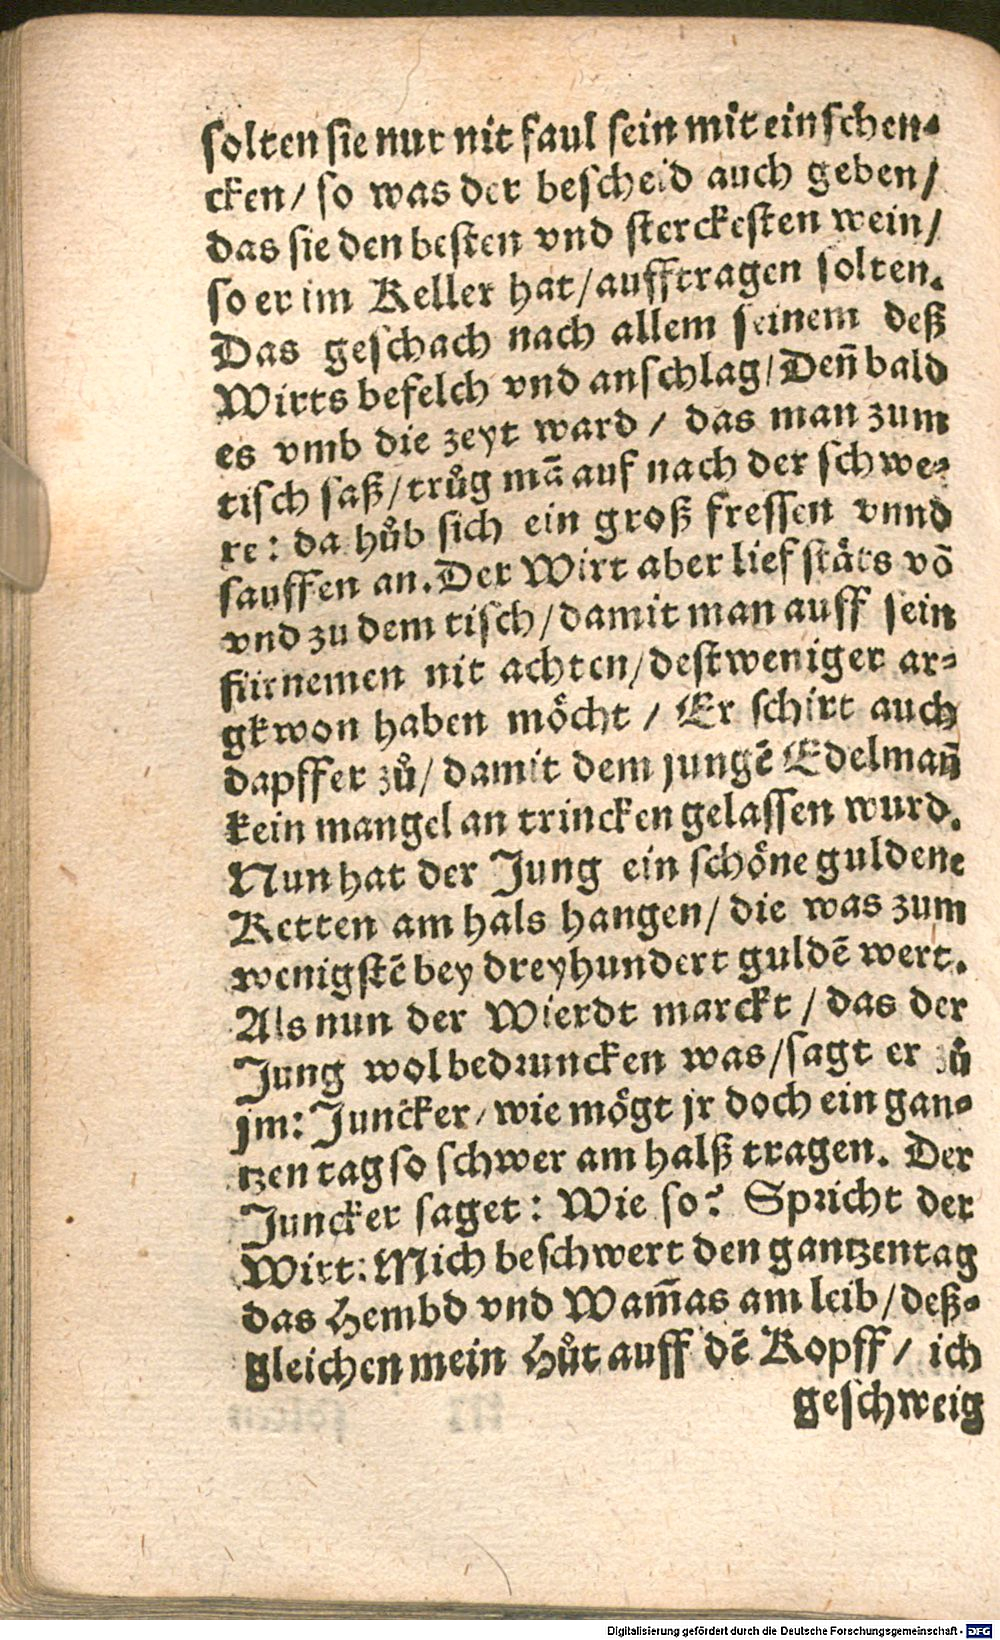 solten sie nur nit faul sein mit einschen-
cken/ so was der bescheid auch geben/
das sie den besten vnd sterckesten wein/
so er im Keller hat/ aufftragen solten.
Das geschach nach allem seinem deß
Wirts befelch vnd anschlag/ Deñ bald
es vmb die zeyt ward / das man zum
tisch saß/ trůg mã auf nach der schwe-
re: da hůb sich ein groß fressen vnnd
sauffen an. Der Wirt aber lief stäts võ
vnd zu dem tisch/ damit man auff sein
fürnemen nit achten/ destweniger ar-
gkwon haben möcht / Er schirt auch
dapffer zů/ damit dem jungẽ Edelmañ
kein mangel an trincken gelassen wurd.
Nun hat der Jung ein schöne guldene
Ketten am hals hangen/ die was zum
wenigstẽ bey dreyhundert guldẽ wert.
Als nun der Wierdt marckt / das der
Jung wol bedruncken was/ sagt er zů
jm: Juncker/ wie mögt jr doch ein gan-
tzen tag so schwer am halß tragen. Der
Juncker saget: Wie so? Spricht der
Wirt: Mich beschwert den gantzen tag
das Hembd vnd Wam̃as am leib/ deß-
gleichen mein Hůt auff dẽ Kopff/ ich
geschweig
Digitalisierung gefördert durch die Deutsche Forschungsgemeinschaft - DFG